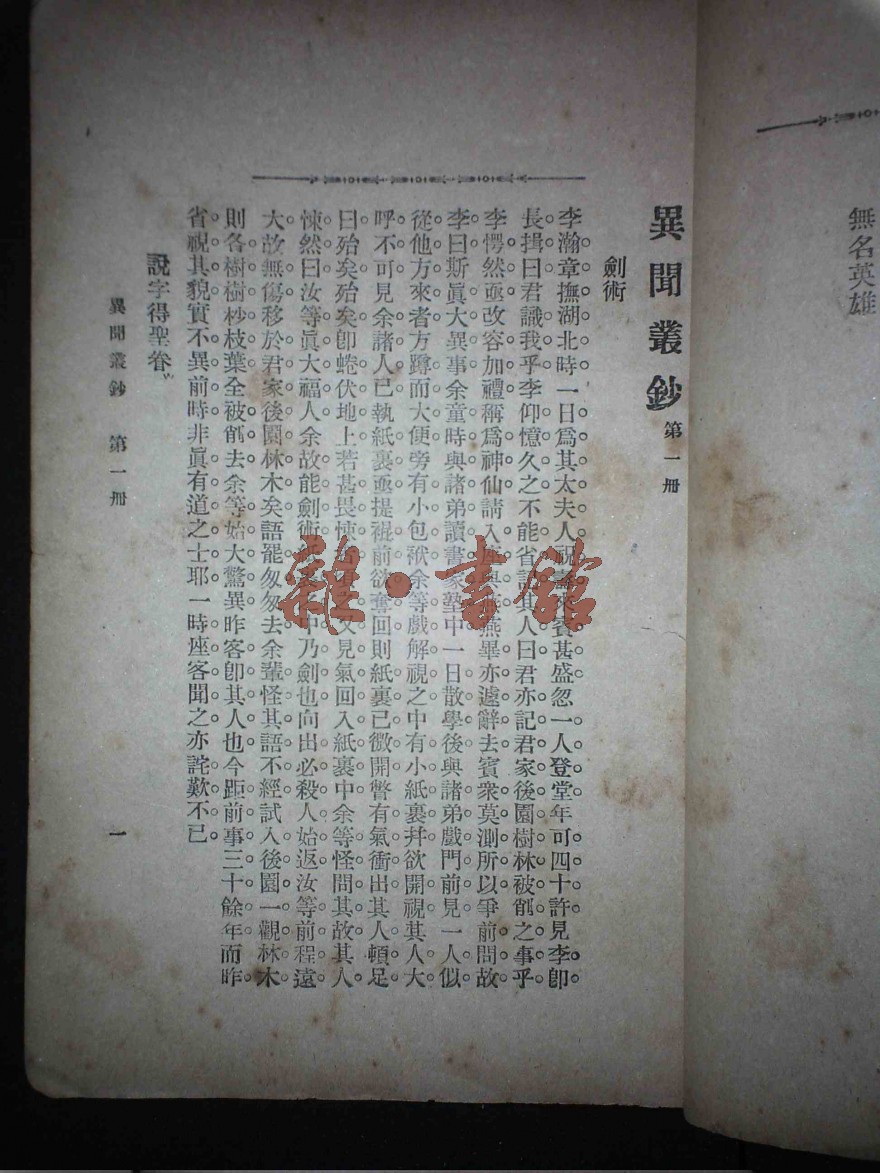 無名英雄
異聞叢鈔 第一册
劍術
李瀚章撫湖北時一日爲其太夫人祝壽來賓甚盛忽一人登堂年可四十許見李卽
長揖曰君識我乎李仰憶久之不能省記其人曰君亦記君家後園樹林被削之事乎
李愕然亟改容加禮稱爲神仙請入座與燕燕畢亦遽辭去賓衆莫測所以爭前問故
李曰斯眞大異事余童時與諸弟讀書家塾中一日散學後與諸弟戲門前見一人似
從他方來者方蹲而大便旁有小包袱余等戲解視之中有小紙裹幷欲開視其人大
呼不可見余諸人已執紙裹亟提裩前欲奪回則紙裹已微開瞥有氣衝出其人頓足
曰殆矣殆矣卽蜷伏地上若甚畏悚 又見氣回入紙裹中余等怪問其故其人
悚然曰汝等眞大福人余故能劍術 中乃劍也向出必殺人始返汝等前程遠
大故無傷移於君家後園林木矣語罷匆匆去余輩怪其語不經試入後園一觀林木
則各樹樹杪枝葉全被削去余等始大驚異昨客卽其人也今距前事三十餘年而昨
省視其貌實不異前時非眞有道之士耶一時座客聞之亦詫歎不已
說字得聖眷
異聞叢鈔 第一册
一
雜·書館